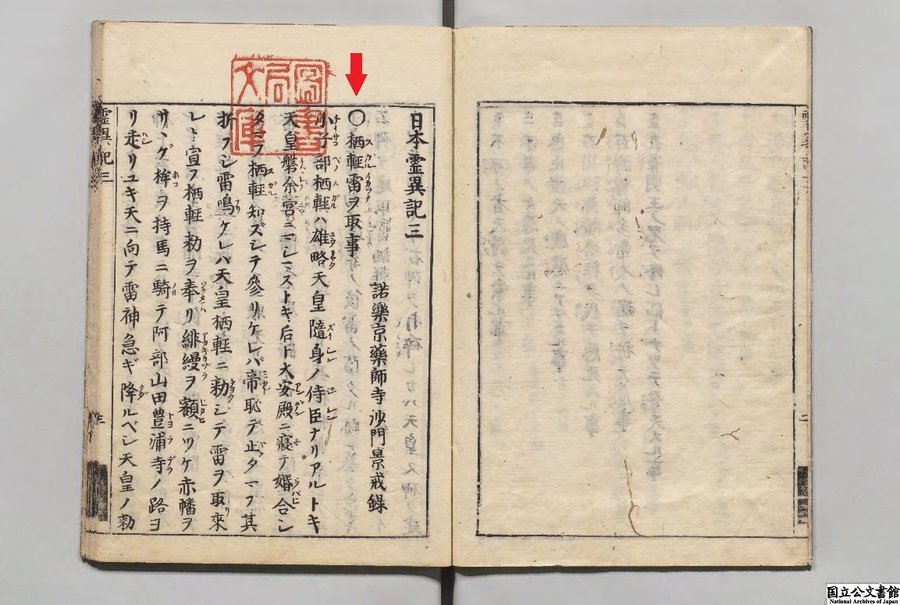 日本霊異記三
諾樂京藥師寺沙門景戒錄
〇栖軽雷ヲ取事
小子部栖軽ハ雄略天皇隨身ノ侍臣ナリアルトキ
天皇磐余宮ニマシマストキ后ト大安殿ニ寝テ婚合シ
タマフ栖軽知ズシテ參リケレバ帝恥テ止タマフ其
折フシ雷鳴ケレバ天皇栖軽ニ勅シテ雷ヲ取來
レト宣フ栖軽勅ヲ奉リ緋縵ヲ額ニツケ赤幡ヲ
サヽゲ桙ヲ持馬ニ騎テ阿部山田豊浦寺ノ路ヨ
リ走リユキ天ニ向テ雷神急ギ降ルベシ天皇ノ勅
霊異記三
国立公文書館
National Archives of Japan